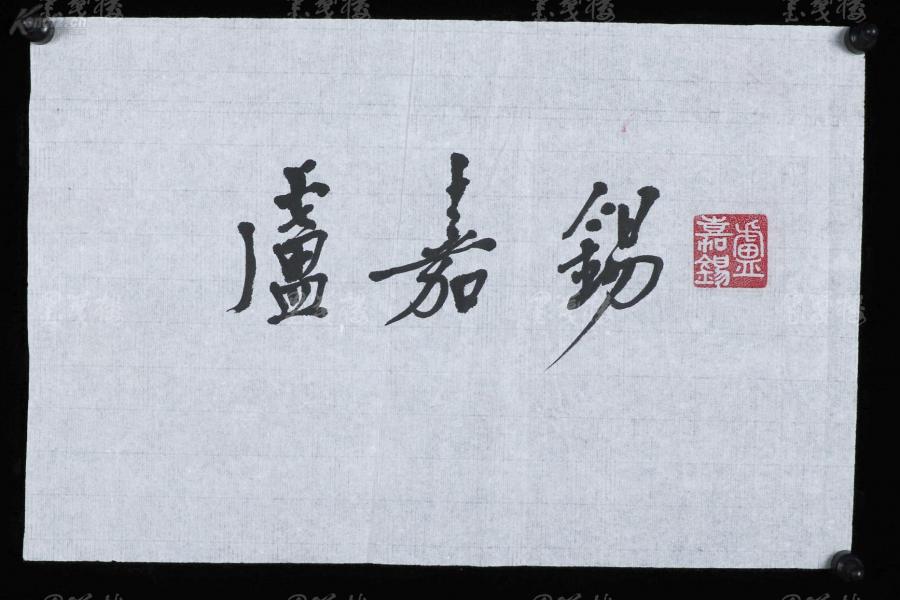 盧嘉錫
盧嘉錫